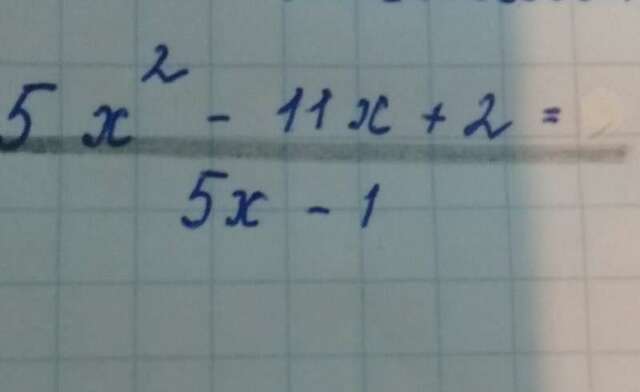 5x² - 11x + 2 =
5x - 1